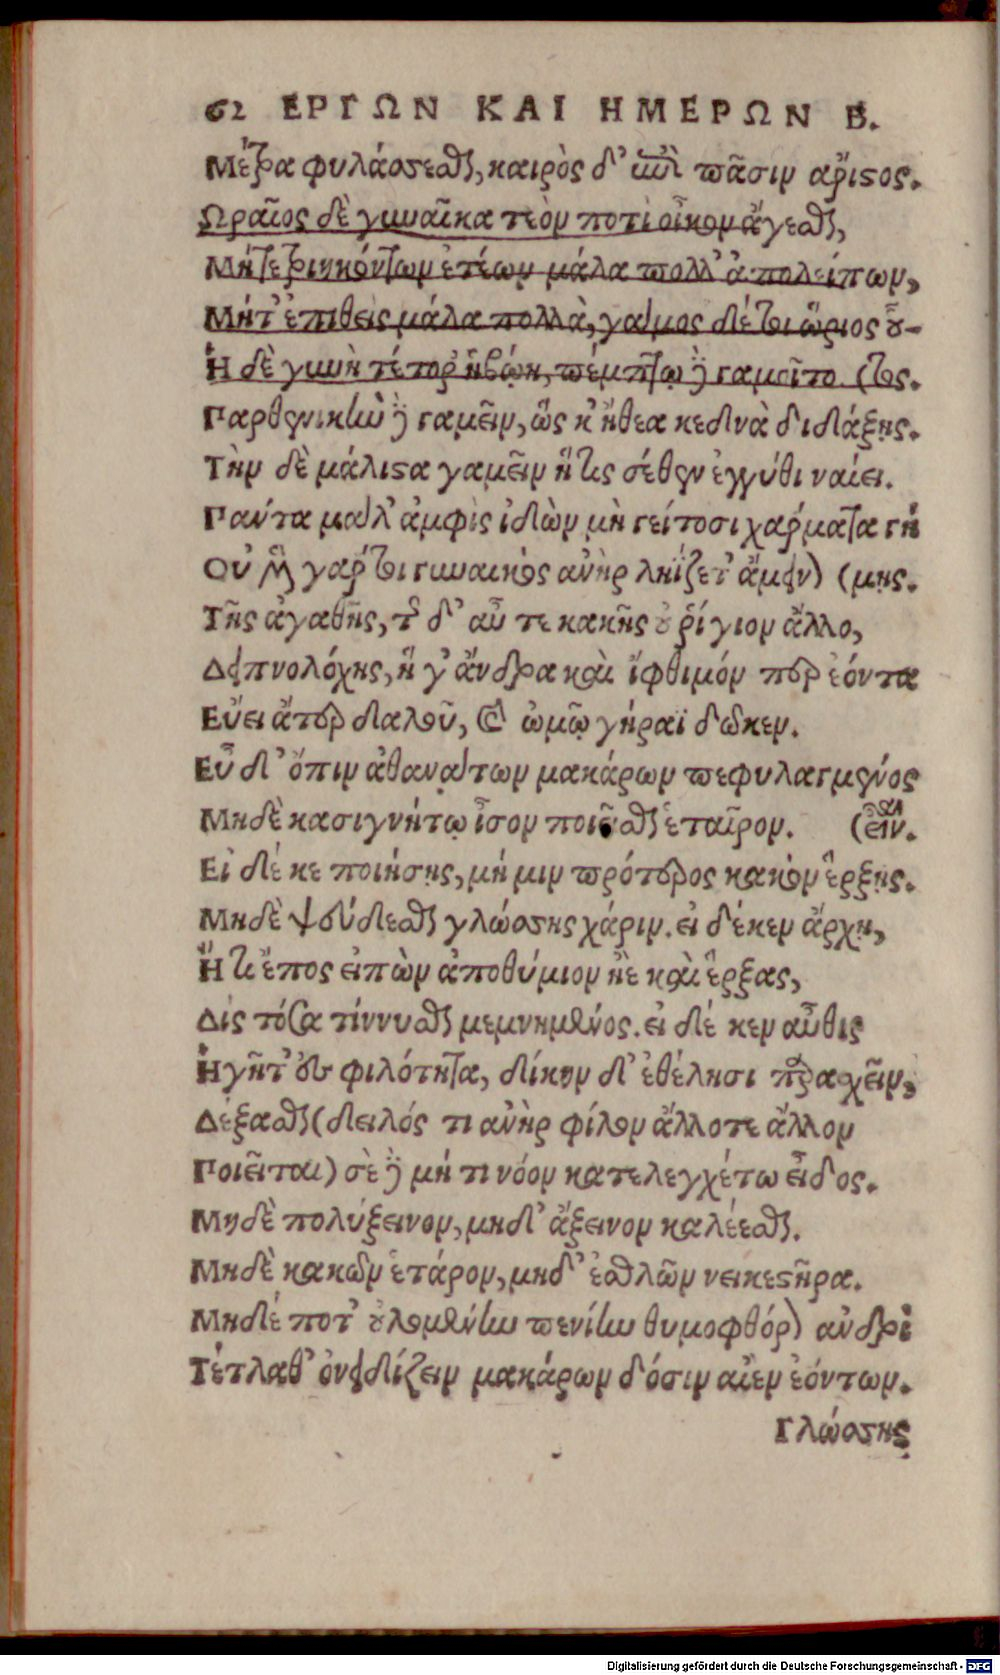 62 ΕΡΓΩΝ ΚΑΙ ΗΜΕΡΩΝ Β.
Μέτρα φυλάσσεσθαι, καιρὸς δ' ἐπὶ πᾶσιν ἄριστος.
Ὡραῖος δὲ γυναῖκα τεὸν ποτὶ οἶκον ἄγεσθαι,
Μήτε τριηκόντων ἐτέων μάλα πολλ' ἀπολείπων,
Μήτ' ἐπιθεὶς μάλα πολλὰ, γάμος δέ τοι ὥριος οὗ-
Ἡ δὲ γυνὴ τέτορ' ἡβώῃ, πέμπτῳ δὲ γαμοῖτο. (τος.
Παρθενικὴν δὲ γαμεῖν, ὥς κ' ἤθεα κεδνὰ διδάξῃς.
Τὴν δὲ μάλιστα γαμεῖν ἥτις σέθεν ἐγγύθι ναίει.
Πάντα μάλ' ἀμφὶς ἰδὼν μὴ γείτοσι χάρματα γή
Οὐ μὲν γάρ τοι γυναικὸς ἀνὴρ ληΐζετ' ἄμεινον (μῃς.
Τῆς ἀγαθῆς, τῆς δ' αὖτε κακῆς οὐ ῥίγιον ἄλλο,
Δειπνολόχης, ἥ γ' ἄνδρα καὶ ἴφθιμόν περ ἐόντα
Εὕει ἄτερ δαλοῦ, καὶ ὠμῷ γήραϊ δῶκεν.
Εὖ δ' ὄπιν ἀθανάτων μακάρων πεφυλαγμένος
Μηδὲ κασιγνήτῳ ἶσον ποιεῖσθαι ἑταῖρον. (εἶναι.
Εἰ δέ κε ποιήσῃς, μή μιν πρότερος κακὸν ἔρξῃς.
Μηδὲ ψεύδεσθαι γλώσσης χάριν. εἰ δέ κεν ἄρχῃ,
Ἤ τι ἔπος εἰπὼν ἀποθύμιον ἠὲ καὶ ἔρξας,
Δὶς τόσα τίννυσθαι μεμνημένος. εἰ δέ κεν αὖθις
Ἡγῆτ' ἐς φιλότητα, δίκην δ' ἐθέλησι παρασχεῖν,
Δέξασθαι (δειλός τι ἀνὴρ φίλον ἄλλοτε ἄλλον
Ποιεῖται) σὲ δὲ μή τι νόον κατελεγχέτω εἶδος.
Μηδὲ πολύξεινον, μηδ' ἄξεινον καλέεσθαι.
Μηδὲ κακῶν ἑτάρον, μηδ' ἐσθλῶν νεικεστῆρα.
Μηδέ ποτ' οὐλομένην πενίην θυμοφθόρον ἀνδρὶ
Τέτλαθ' ὀνειδίζειν μακάρων δόσιν αἰὲν ἐόντων.
Γλώσσης
Digitalisierung gefördert durch die Deutsche Forschungsgemeinschaft - DFG